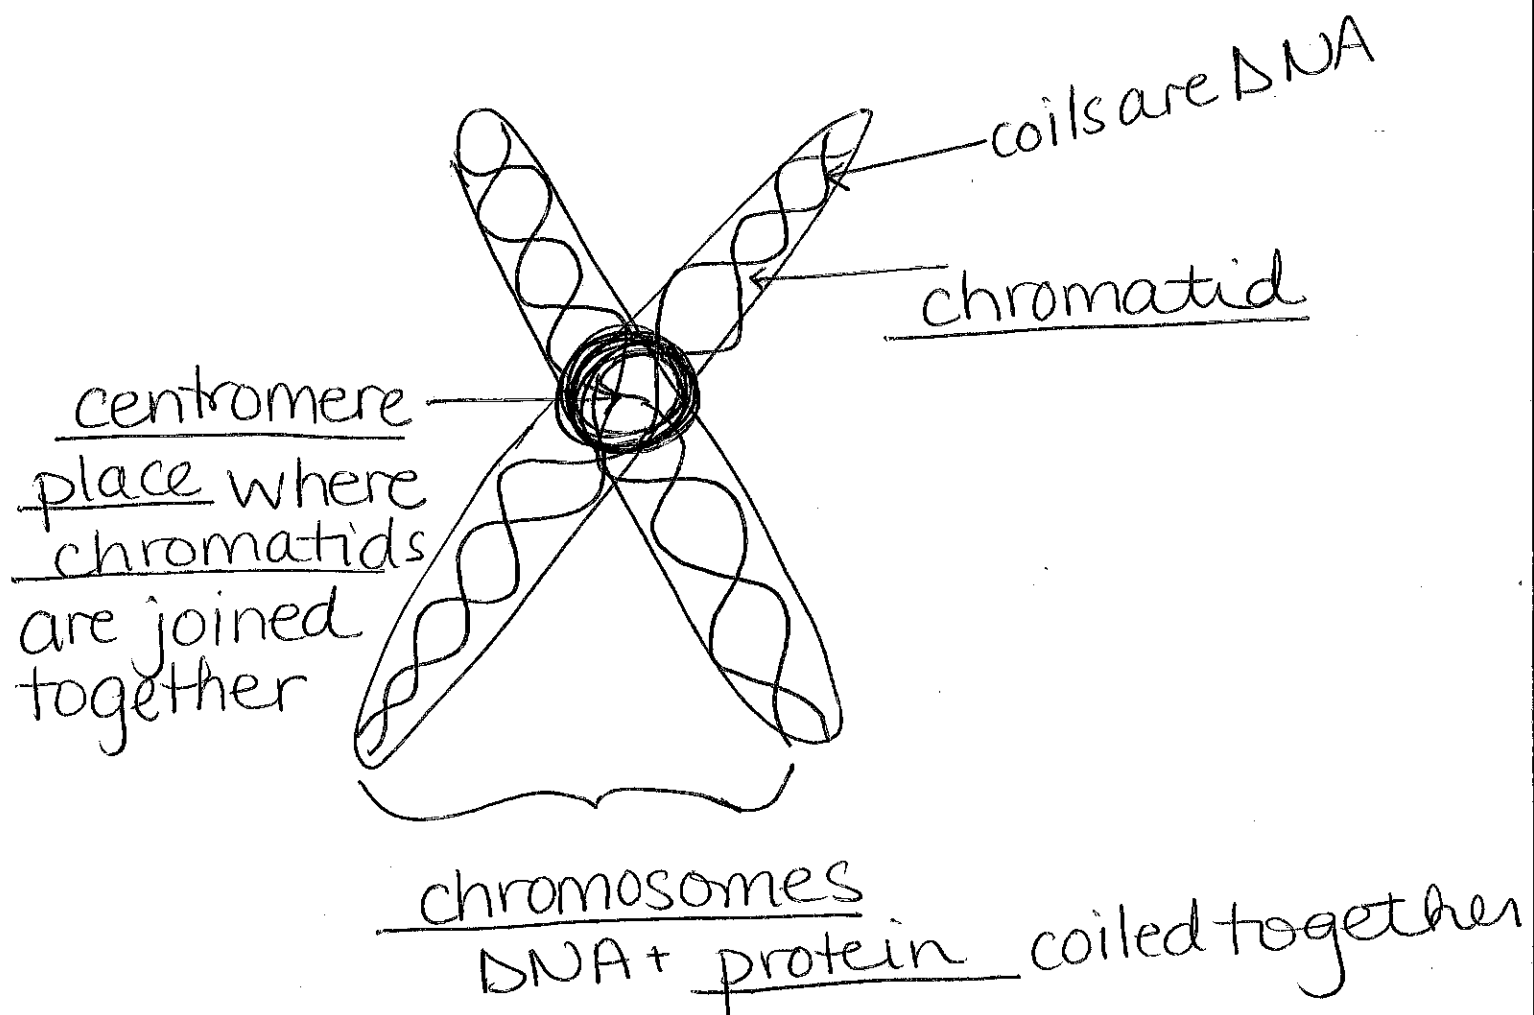 coils are DNA
chromatid
centromere
place where
chromatids
are joined
together
chromosomes
DNA + protein coiled together